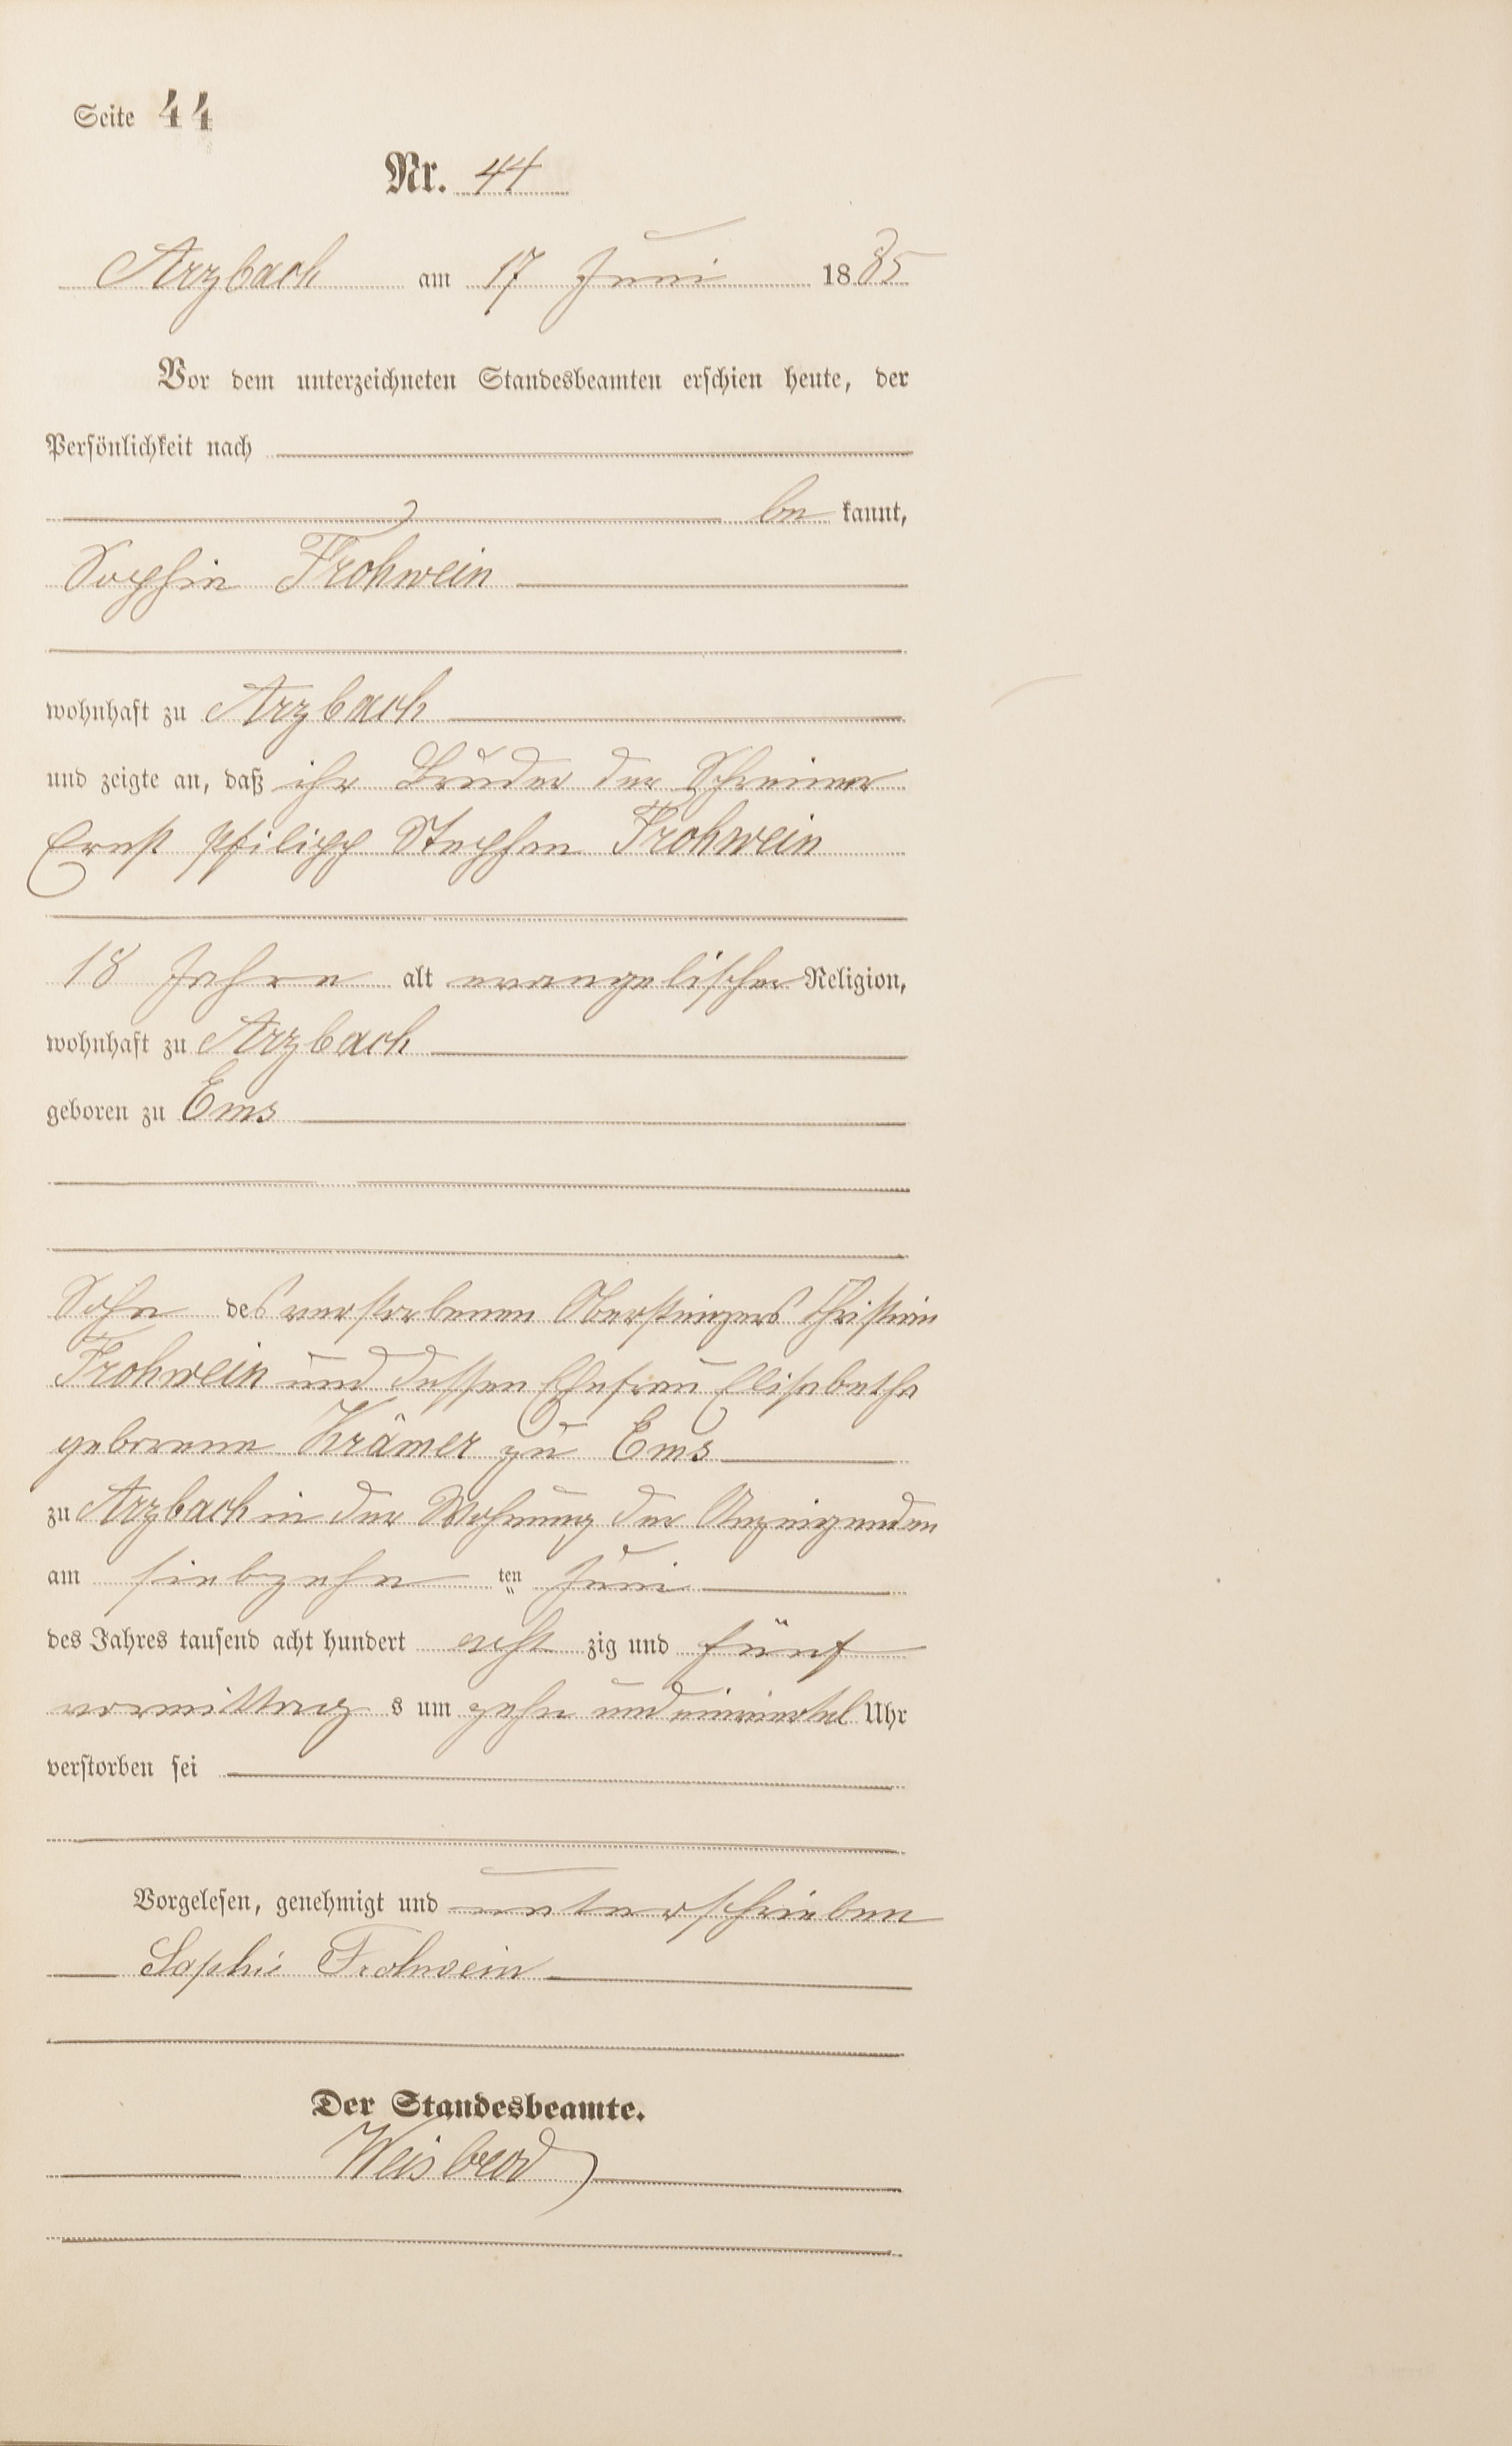 Seite 44
Nr. 44
Arzbach am 17 Juni 1885
Vor dem unterzeichneten Standesbeamten erschien heute, der
Persönlichkeit nach
be kannt,
Sophie Frohwein
wohnhaft zu Arzbach
und zeigte an, daß ihr Bruder der Schreiner
Ernst Philipp Stephan Frohwein
18 Jahre alt evangelischer Religion,
wohnhaft zu Arzbach
geboren zu Ems
Sohn des verstorbenen Obersteigers Christian
Frohwein und dessen Ehefrau Elisabetha
geborene Krämer zu Ems
zu Arzbach in der Wohnung der Anzeigenden
am siebzehn ten Juni
des Jahres tausend acht hundert acht zig und fünf
vormittag s um zehn und einviertel Uhr
verstorben sei
Vorgelesen, genehmigt und unterschrieben
Sophie Frohwein
Der Standesbeamte.
Weisbrod